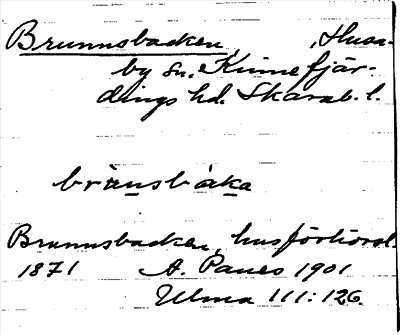 Brunnsbacken, Husa-
by sn. Kinnefjär-
dings hd. Skarab. l.
brünsbàka
Brunnsbacken, husförhörsl.
1871 A. Panes 1901
Ulma 111:126.